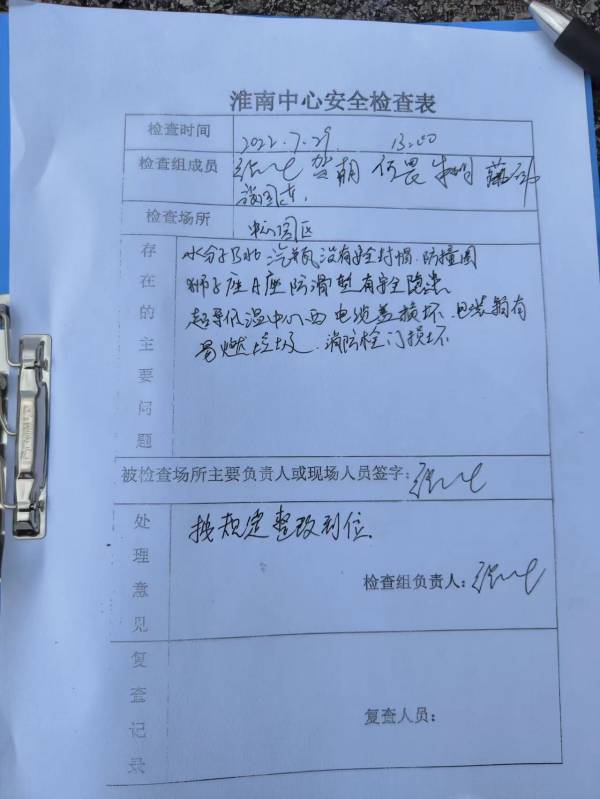 淮南中心安全检查表
检查时间 2022.7.29. 13:00
检查组成员 贺朝 何畏
检查场所 园区
存在的主要问题
汽瓶没有安全封帽.防撞圈
狮子座A座防滑垫有安全隐患
超导低温中心西电缆盖损坏.包装箱有
易燃垃圾.消防栓门损坏
被检查场所主要负责人或现场人员签字:
处理意见
按规定整改到位.
检查组负责人:
复查记录
复查人员: